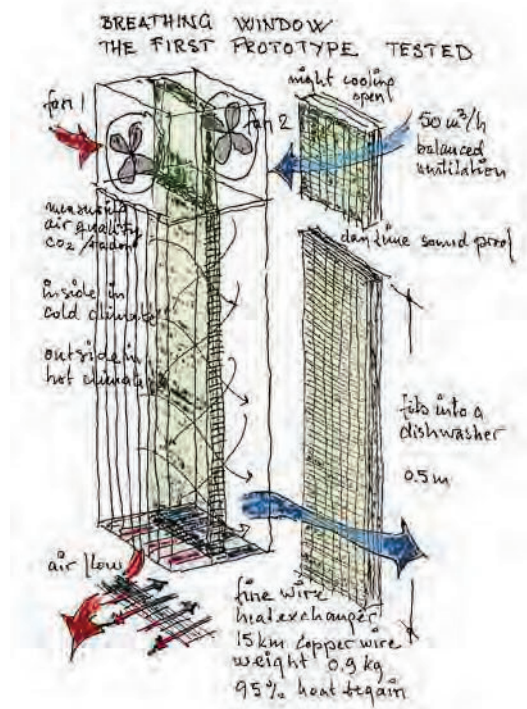 BREATHING WINDOW
THE FIRST PROTOTYPE TESTED
fan 1
fan 2
night cooling
open
50 m³/h
balanced
ventilation
air quality
CO2 / radon
inside in
cold climate
outside in
hot climate
day time sound proof
fits into a
dishwasher
0.5 m
air flow
fine wire
heat exchanger
15 km copper wire
weight 0.9 kg
95% heat regain